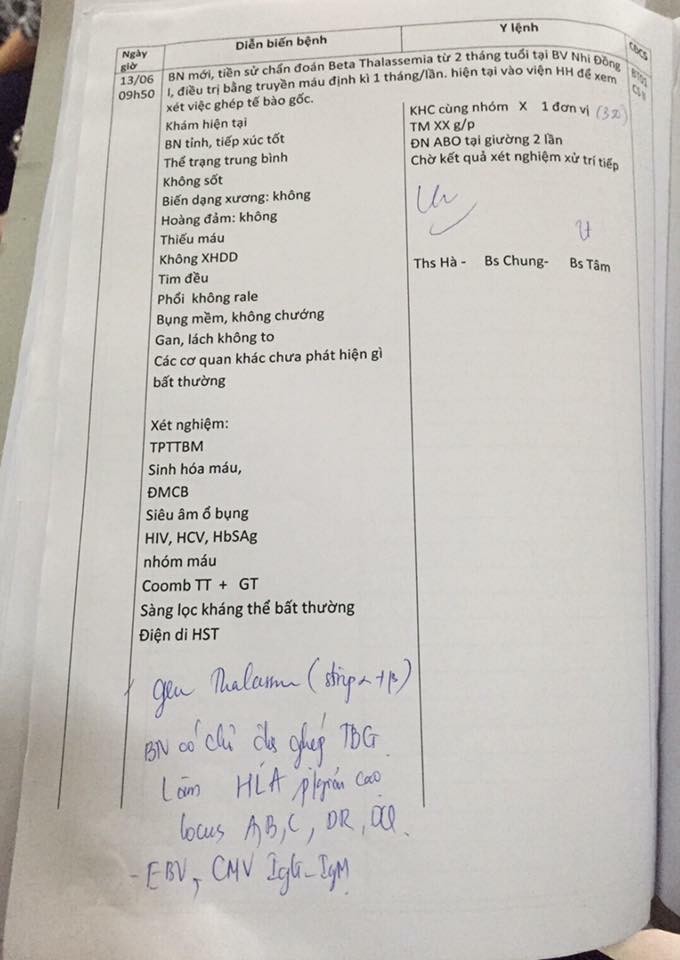 Ngày giờ
Diễn biến bệnh
Y lệnh
CĐCS
13/06
09h50
BN mới, tiền sử chẩn đoán Beta Thalassemia từ 2 tháng tuổi tại BV Nhi Đồng
I, điều trị bằng truyền máu định kì 1 tháng/lần. hiện tại vào viện HH để xem
xét việc ghép tế bào gốc.
Khám hiện tại
BN tỉnh, tiếp xúc tốt
Thể trạng trung bình
Không sốt
Biến dạng xương: không
Hoàng đảm: không
Thiếu máu
Không XHDD
Tim đều
Phổi không rale
Bụng mềm, không chướng
Gan, lách không to
Các cơ quan khác chưa phát hiện gì
bất thường
Xét nghiệm:
TPTTBM
Sinh hóa máu,
ĐMCB
Siêu âm ổ bụng
HIV, HCV, HbSAg
nhóm máu
Coomb TT + GT
Sàng lọc kháng thể bất thường
Điện di HST
gen Thalassemia (strip α + β)
BN có chỉ định ghép TBG
Làm HLA p/giải cao
locus A,B,C, DR, DQ.
- EBV, CMV IgG-IgM
KHC cùng nhóm X 1 đơn vị
TM XX g/p
ĐN ABO tại giường 2 lần
Chờ kết quả xét nghiệm xử trí tiếp
Ths Hà - Bs Chung- Bs Tâm